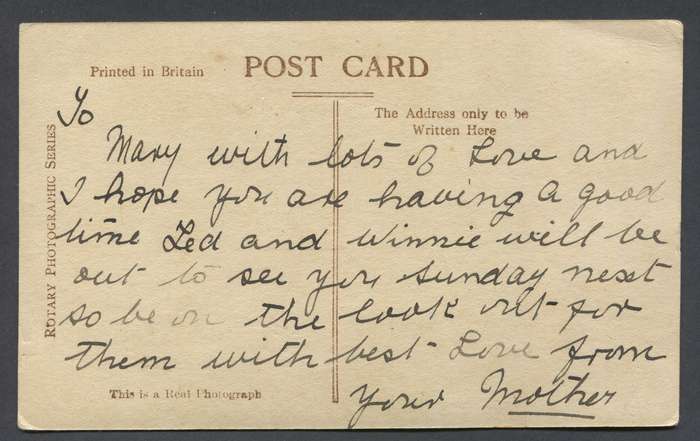 Printed in Britain
POST CARD
The Address only to be
Written Here
ROTARY PHOTOGRAPHIC SERIES
To
Mary with lots of Love and
I hope you are having a good
time Ted and Winnie will be
out to see you Sunday next
so be on the look out for
them with best Love from
your Mother
This is a Real Photograph